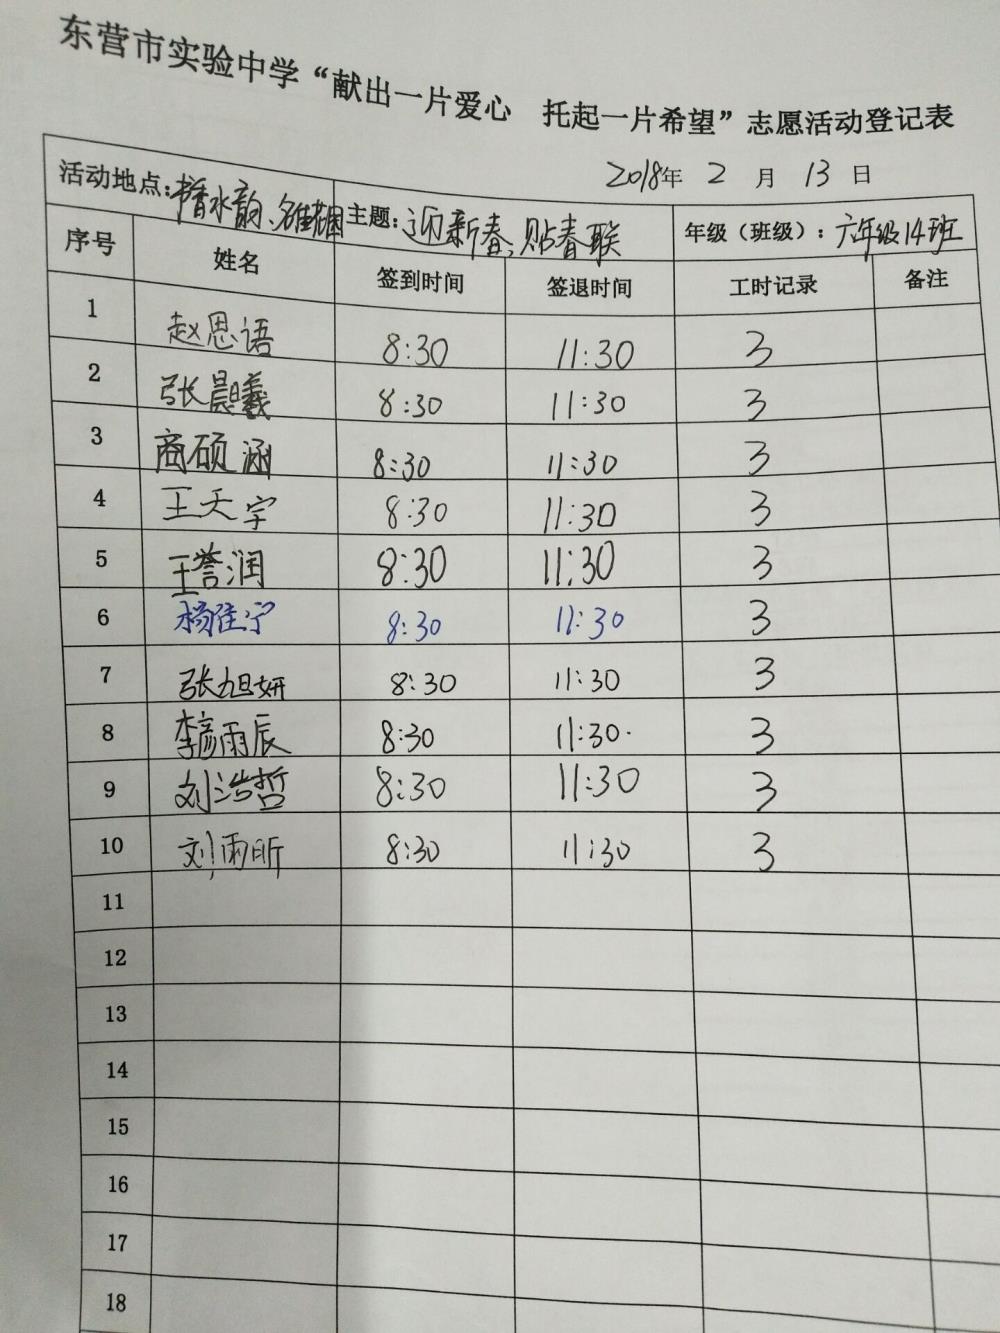 东营市实验中学“献出一片爱心 托起一片希望”志愿活动登记表
2018年 2 月 13 日
活动地点: 水韵、 主题: 迎新春、贴春联 年级（班级）: 六年级14班
序号 姓名 签到时间 签退时间 工时记录 备注
1 赵思语 8:30 11:30 3
2 张晨曦 8:30 11:30 3
3 商硕涵 8:30 11:30 3
4 王天宇 8:30 11:30 3
5 王誉润 8:30 11:30 3
6 杨佳宁 8:30 11:30 3
7 张旭妍 8:30 11:30 3
8 李彦雨辰 8:30 11:30 3
9 刘浩哲 8:30 11:30 3
10 刘雨昕 8:30 11:30 3
11
12
13
14
15
16
17
18